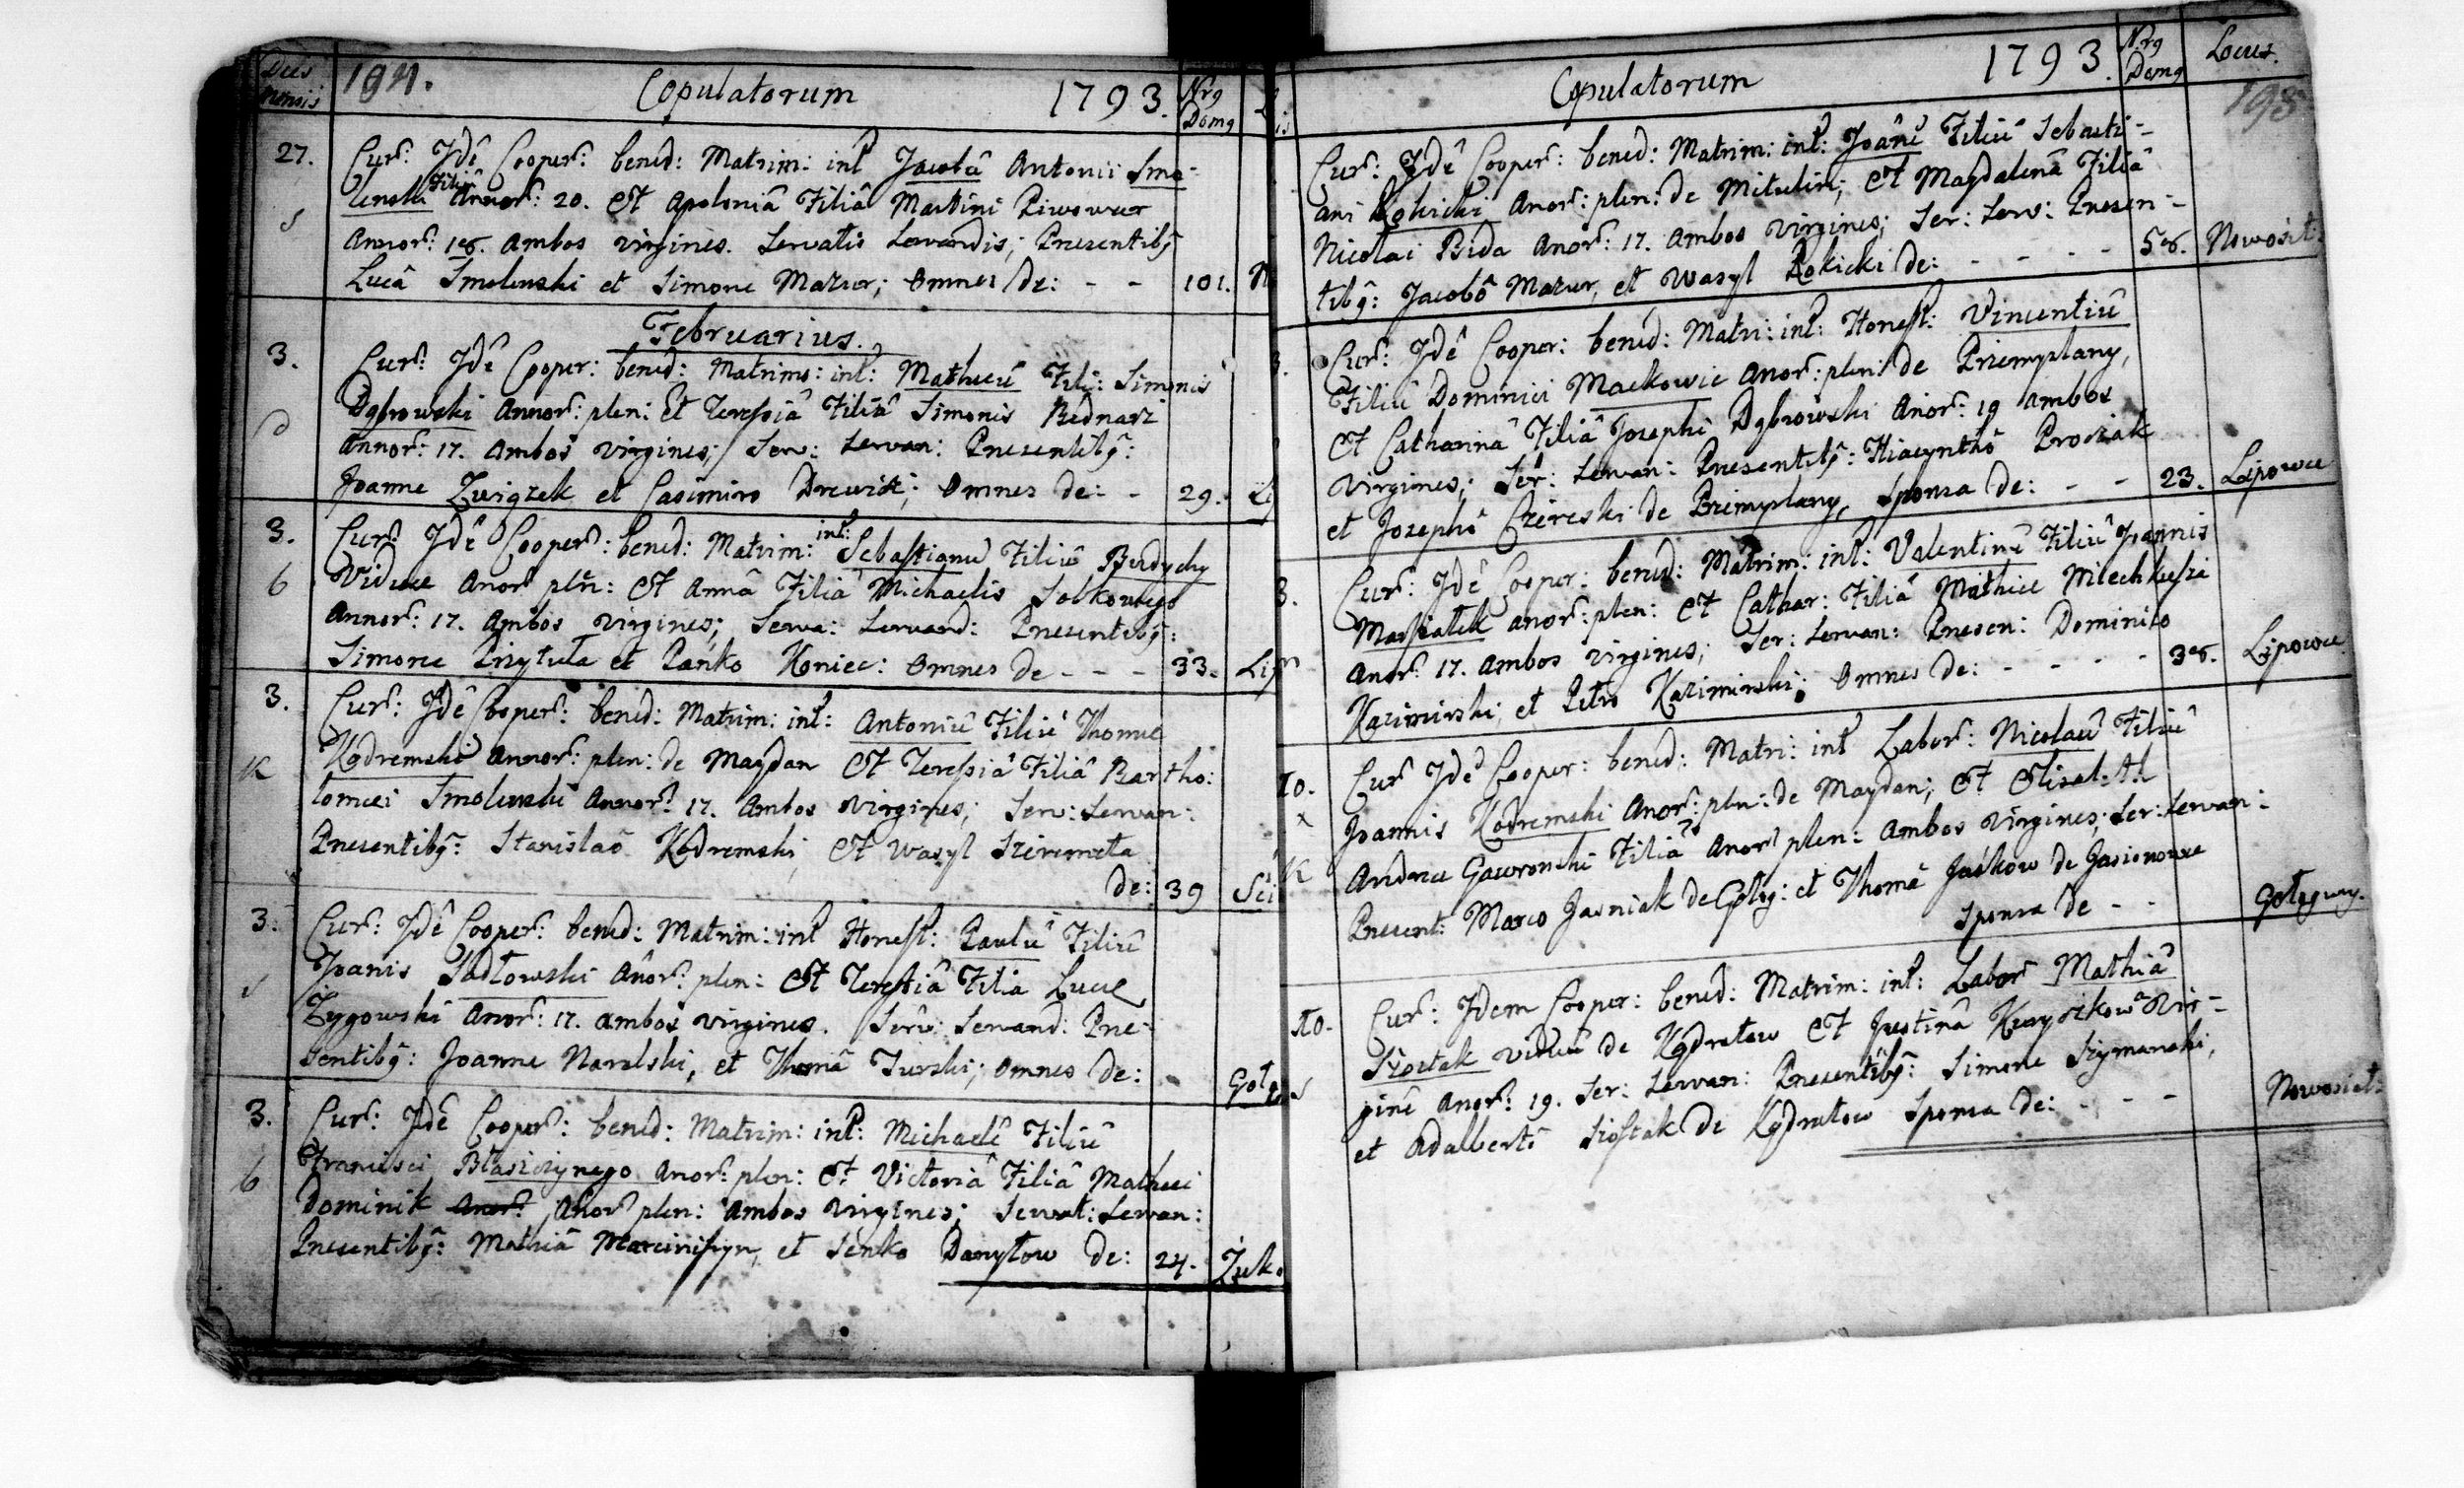 Dies Mensis 194. Copulatorum 1793. Nrg Domg
27. Curª: Jdê Cooperª: bened: Matrim: int Jacobû Antonii Smo-
lenski Filiû Annorˀ: 20. et Apoloniâ Filiâ Martini Piwowar
S Annorˀ: 18. Ambos virgines. Servatis Servandis; Presentibg
Lucâ Smolenski et Simone Mazur; Omnes de: - - 101.
Februarius.
3. Curˀ: Jdê Cooper: bened: Matrimo: int: Matheû Fili: Simonis
D Dąbrowski Annorˀ: plen: et Teressiâ Filiâ Simonis Bednarz
Annorˀ: 17. Ambos virgines; Serv: Servan: Presentibg:
Joanne Związek et Casimiro Drewicz; Omnes de: - 29. Li
3. Curˀ: Jdê Cooperˀ: bened: Matrim: int: Sebastianû Filiû Budychy
6 Vidue Anorˀ pln: et Annâ Filiâ Michaelis Solkowego
Annorˀ: 17. Ambos virgines; Serva: Servand: Presentibg:
Simone Przytuła et Pańko Koniec: Omnes de - - - 33. Lip
3. Curˀ: Jdê Cooperˀ: bened: Matrim: int: Antoniû Filiû Thome
K Kądremski Annorˀ: plen: de Maydan et Teressiâ Filiâ Bartho:
lomei Smolenski Annorˀ: 17. Ambos virgines; Serv: Servan:
Presentibg: Stanislaô Kądremski, et Wasyl Szeremeta
de: 39 Sci
3: Curˀ: Jdê Cooperˀ: bened: Matrim: int Honest: Paulû Filiû
S Joanis Sadłowski Anorˀ: plen: et Teressiâ Filia Luce
Zygowski Anorˀ: 17. ambos virgines. Serv: Servand: Pre-
sentibg: Joanne Naralski, et Thomâ Turski; Omnes de: - Gołg
3. Curˀ: Jdê Cooperˀ: bened: Matrim: int: Michaelê Filiû
6 Francisci Błaszczynego Anorˀ: plen: et Victoriâ Filiâ Mathei
Dominik Anorˀ: Anorˀ plen: Ambos virgines; Servat: Servan:
Presentibg: Mathiâ Marciniszyn, et Senko Danyłow de: 24. Żuk.
Copulatorum 1793. Nrg Domg Locus.
198
Curˀ: Jdê Cooperˀ: bened: Matrim: int: Joânê Filiû Sebasti-
ani Rokicki Anorˀ: plen: de Mitulin; et Magdalenâ Filiâ
Nicolai Bida Anorˀ: 17. Ambos virgines; Ser: Serv: Presen-
tibg: Jacobô Mazur, et Wasyl Rokicki de: - - - - 58. Nowosiół:
3. Curˀ: Jdê Cooper: bened: Matri: int: Honest: Vincentiû
Filiû Dominici Mackowic Anorˀ: plen: de Przemyslany,
et Catharinâ Filiâ Josephi Dąbrowski Anorˀ: 19 ambos
virgines; Ser: Servan: Presentibg: Hiacynthô Prociak
et Josephô Czereski de Przemyslany, Sponsa de: - - 23. Lipowce
3. Curˀ: Jdê Cooper: bened: Matrim: int: Valentinû Filiû Joannis
Marszałek anorˀ: plen: et Cathar: Filiâ Mathie Niechkuszi
Anorˀ: 17. Ambos virgines; Ser: Servan: Presen: Dominico
Kazimirski, et Petro Kazimirski; Omnes de: - - - - 38. Lipowce
10. Curˀ Jdê Cooper: bened: Matri: int Laborˀ: Nicolaû Filiû
x Joannis Kodremski Anorˀ: pln: de Maydan; et Elisabeth
K Andree Gaworonski Filiâ Anorˀ plen: Ambos virgines; Ser: Servan:
Present: Marco Jasniak de Gołog: et Thomâ Jaśkow de Jasionowce
Sponsa de - - Gołogury.
10. Curˀ: Jdem Cooper: bened: Matrim: int: Laborˀ Mathiâ
Szostak viduû de Kądratow et Justinâ Krzyszkowª Vir-
S ginê Anorˀ: 19. Ser: Servan: Presentibg: Simone Szymanski,
et Adalbertô Szostak de Kądratow Sponsa de: - - - Nowosiół: